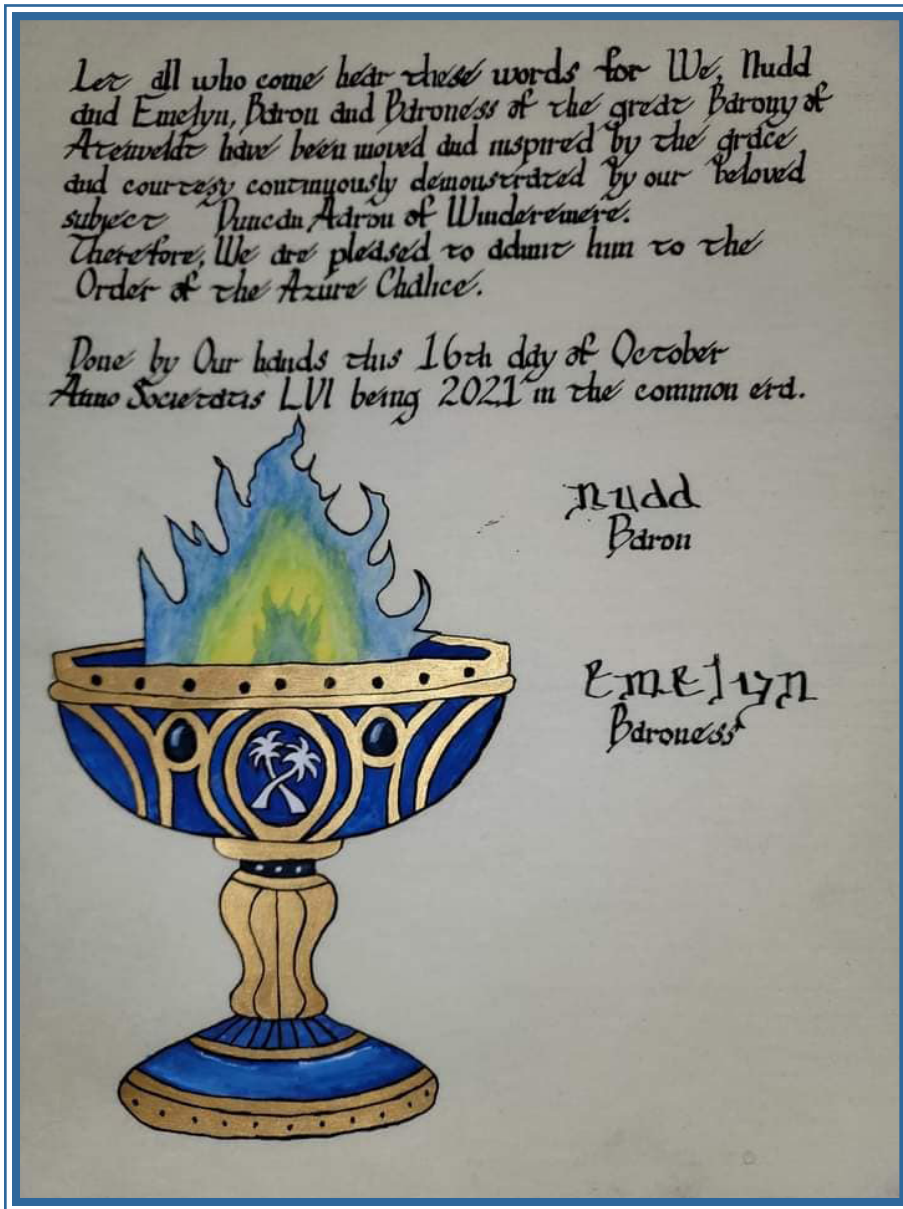 Let all who come hear these words for We, Nudd
and Emelyn, Baron and Baroness of the great Barony of
Atenveldt have been moved and inspired by the grace
and courtesy continuously demonstrated by our beloved
subject Duncan Aaron of Winderemere.
Therefore, We are pleased to admit him to the
Order of the Azure Chalice.
Done by Our hands this 16th day of October
Anno Societatis LVI being 2021 in the common era.
Nudd
Baron
Emelyn
Baroness